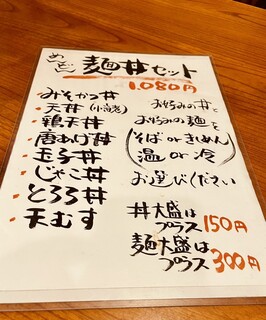 めんどん 麺丼セット
1.080円
みそかつ丼
・天丼(小海老)
・鶏天丼
・唐あげ丼
・玉子丼
・じゃこ丼
・とろろ丼
・天むす
お好みの丼と
お好みの麺を
(そば or きしめん
温 or 冷)
お選びください
丼大盛は
プラス150円
麺大盛は
プラス300円